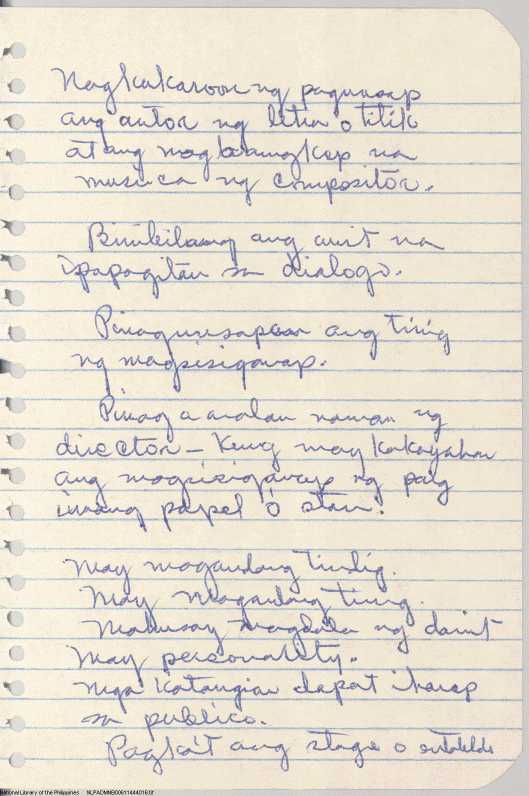 Nagkakaroon ng pagunsap
ang autor ng letra o titik
at ang maglalangkap na
musica ng compositor.
Binibilang ang awit na
ipapagitan sa dialogo.
Pinaguusapan ang tinig
ng magsisiganap.
Pinag aaralan naman ng
director — Kung may kakayahan
ang magsisiganap ng pag
ng papel o star.
May magandang tindig.
May magandang tinig.
Mahusay magdala ng damit
May personality.
mga katangian dapat iharap
sa publico.
Pagka't ang stage o
National Library of the Philippines NLPADMNB00611444016